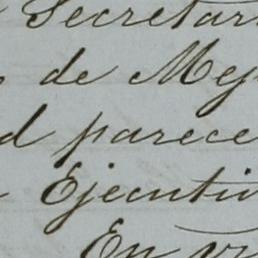 Secretar
de Mej
d parece
Ejecuti
En v